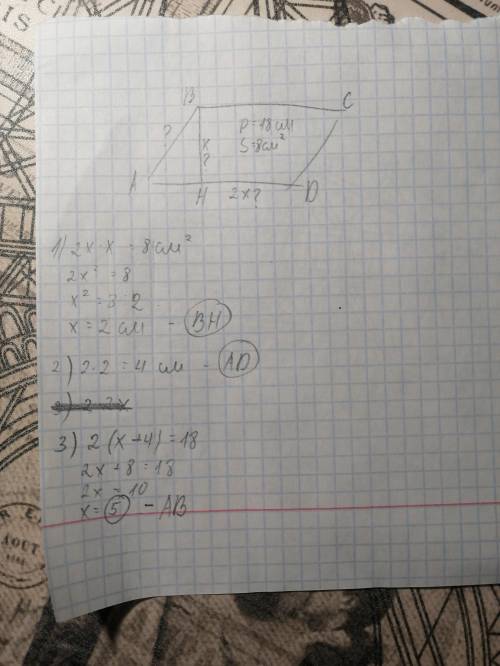 B
C
?
P=18 см
x
S=8см²
?
A
H
2x?
D
1) 2x·x = 8 см²
2x² = 8
x² =
x = 2 см - BH
2) 2·2 = 4 см - AD
3) 2·2x
3) 2(x+4)=18
2x+8=18
2x=10
x=5 - AB